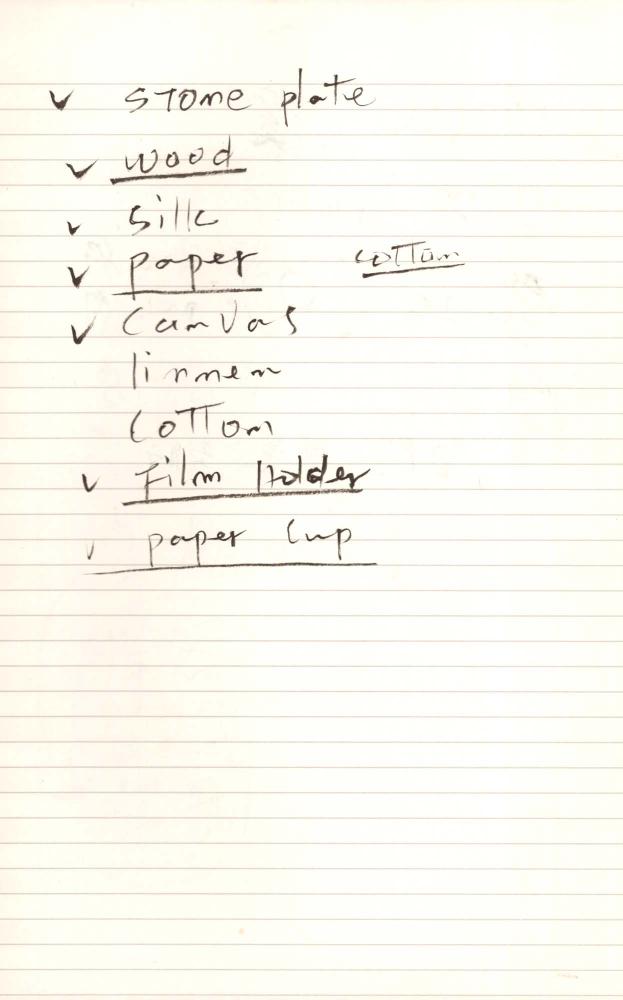 ✓ stone plate
✓ wood
✓ silk
✓ paper cotton
✓ Canvas
linnen
Cotton
✓ Film Holder
✓ paper Cup